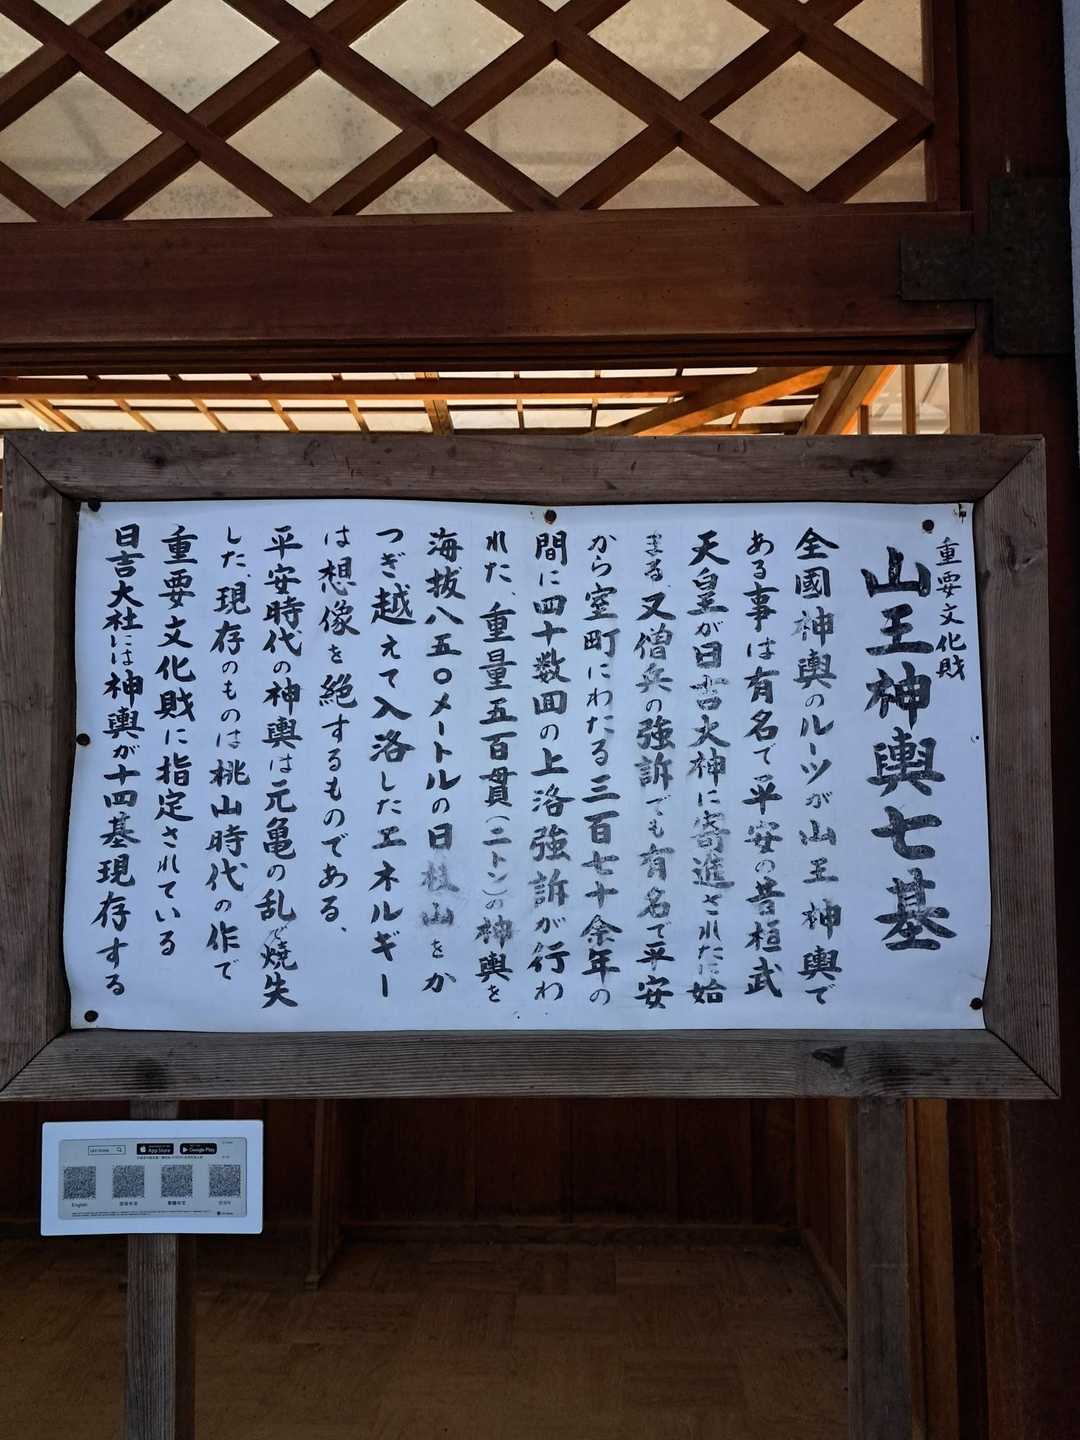 重要文化財
山王神輿七基
全國神輿のルーツが山王神輿で
ある事は有名で平安の昔桓武
天皇が日吉大神に寄進されたに始
まる、又僧兵の強訴でも有名で平安
から室町にわたる三百七十余年の
間に四十数回の上洛強訴が行わ
れた、重量五百貫(二トン)の神輿を
海抜八五〇メートルの日枝山をか
つぎ越えて入洛したエネルギー
は想像を絶するものである、
平安時代の神輿は元亀の乱で焼失
した、現存のものは桃山時代の作で
重要文化財に指定されている
日吉大社には神輿が十四基現存する
App Store
Google Play
English